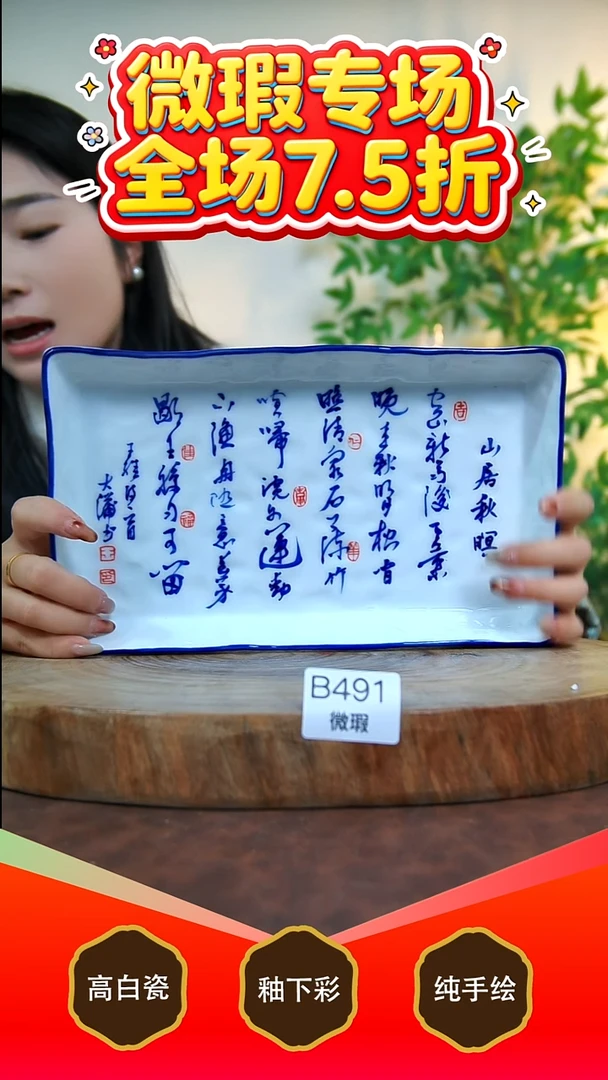 微瑕专场
全场7.5折
山居秋暝
空山新雨後天氣
晚来秋明月松间
照清泉石上流竹
喧歸浣女蓮動
下漁舟随意春芳
歇王孫自可留
王維詩一首
B491
微瑕
高白瓷
釉下彩
纯手绘